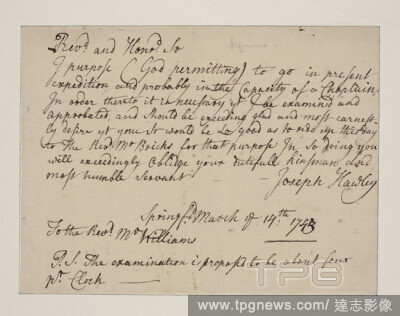 Revd. and Honrd. Sr
I purpose (God permitting) to go in present
expedition and probably in the Capacity of a Chaplain.
In order thereto it is necessary yt I be examind and
approbated, and should be exceeding glad and most earnest-
ly desire yt you Sr would be so good as to ride up this day
to the Revd. Mr Brecks for that purpose In so doing you
will exceedingly oblidge your dutifull kinsman and
most humble Servant
Joseph Hawley
Springfd. March ye 14th. 1743
To the Revd. Mr Williams
P.S. The examination is proposed to be about four
Clock
TPG
www.tpgnews.com / 達志影像